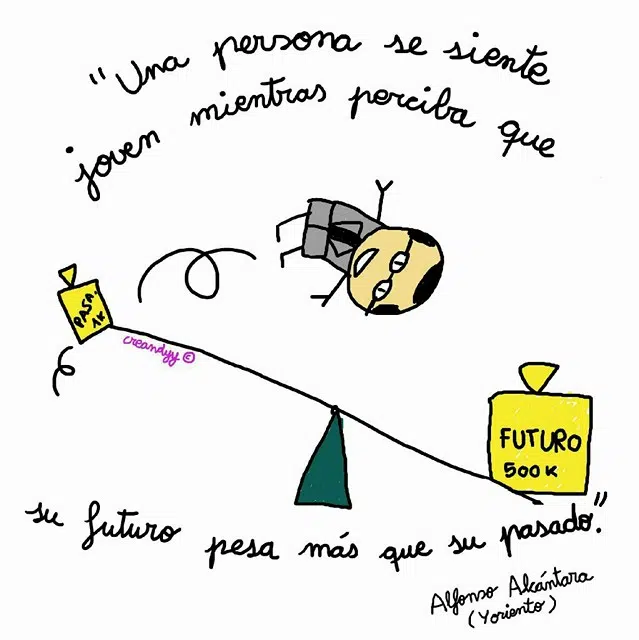 "Una persona se siente
joven mientras perciba que
PASA.
1K
creandyy ©
FUTURO
500K
su futuro pesa más que su pasado."
Alfonso Alcántara
(Yoriento)